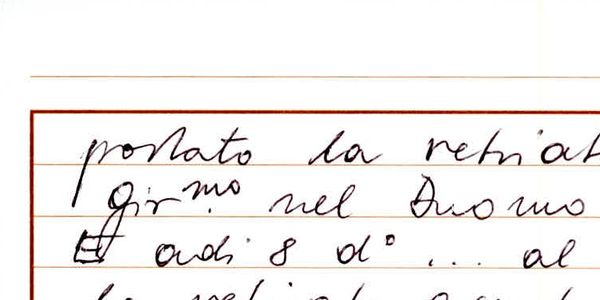 portato la retriat
Gir.mo nel Duomo
Et adi 8 d° ... al